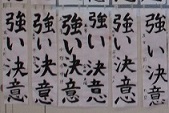 強い決意
強い決意
強い決意
強い決意
強い決意
強い決意